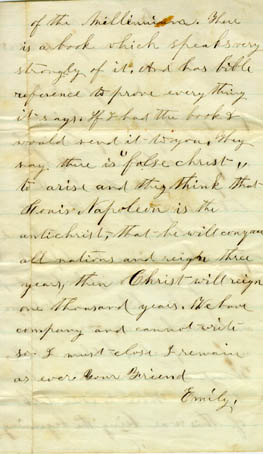 of the Millennium. There
is a book which speaks very
strongly of it. And has bible
reference to prove everything
it says. If I had the book I
would send it to you. They
say there is "false christ"
to arise and they think that
Louis Napoleon is the
antichrist, that he will conquer
all nations and reign three
years, then Christ will reign
one thousand years. We have
company and cannot write
so I must close I remain
as ever Your Friend
Emily.